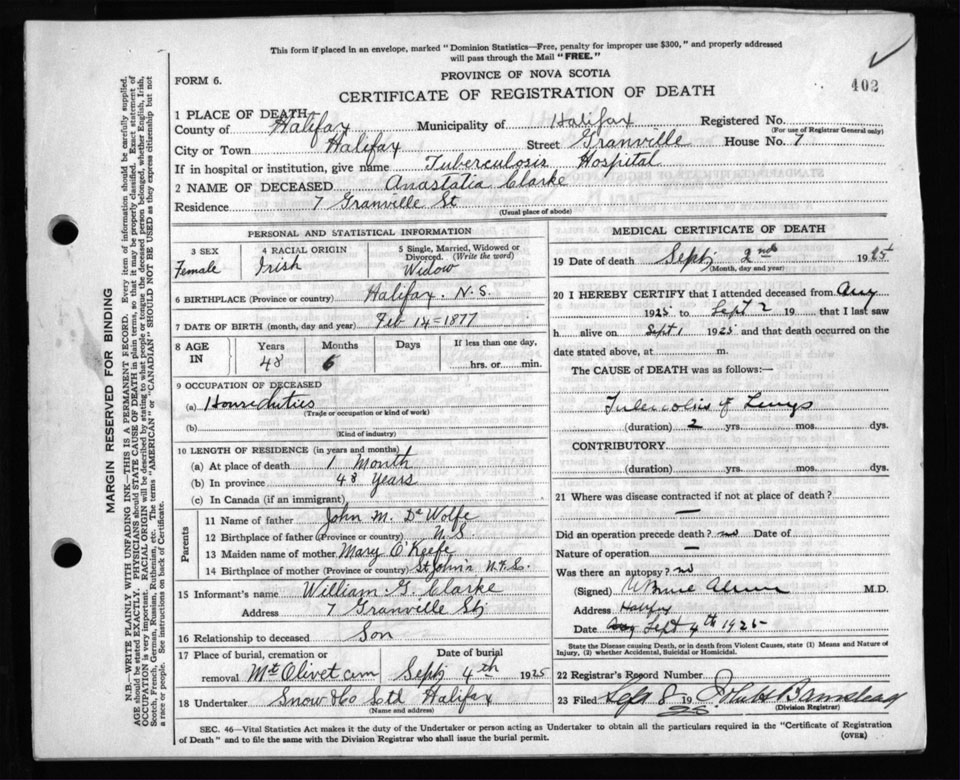 This form if placed in an envelope, marked "Dominion Statistics—Free, penalty for improper use $300," and properly addressed
will pass through the Mail "FREE."
402
FORM 6.
PROVINCE OF NOVA SCOTIA
CERTIFICATE OF REGISTRATION OF DEATH
1 PLACE OF DEATH
County of Halifax Municipality of Halifax Registered No.
(For use of Registrar General only)
City or Town Halifax Street Granville House No. 7
If in hospital or institution, give name Tuberculosis Hospital
2 NAME OF DECEASED Anastatia Clarke
Residence 7 Granville St
(Usual place of abode)
PERSONAL AND STATISTICAL INFORMATION
3 SEX 4 RACIAL ORIGIN 5 Single, Married, Widowed or
Divorced. (Write the word)
Female Irish Widow
6 BIRTHPLACE (Province or country) Halifax. N.S.
7 DATE OF BIRTH (month, day and year) Feb 14=1877
8 AGE IN Years Months Days If less than one day,
48 6 hrs. or min.
9 OCCUPATION OF DECEASED
(a) House duties
(Trade or occupation or kind of work)
(b)
(Kind of industry)
10 LENGTH OF RESIDENCE (in years and months)
(a) At place of death 1 Month
(b) In province 48 years
(c) In Canada (if an immigrant)
Parents
11 Name of father John M. De Wolfe
12 Birthplace of father (Province or country) N.S.
13 Maiden name of mother Mary O'Keefe
14 Birthplace of mother (Province or country) St John's N.F.L.
15 Informant's name William G. Clarke
Address 7 Granville St
16 Relationship to deceased Son
17 Place of burial, cremation or Date of burial
removal Mt Olivet cem Sept 4th 1925
18 Undertaker Snow & Co Ltd Halifax
(Name and address)
MEDICAL CERTIFICATE OF DEATH
19 Date of death Sept 2nd 1925
(Month, day and year)
20 I HEREBY CERTIFY that I attended deceased from Aug
1925 to Sept 2 19 that I last saw
h alive on Sept 1 1925 and that death occurred on the
date stated above, at m.
The CAUSE of DEATH was as follows:—
Tuberculosis of Lungs
(duration) 2 yrs. mos. dys.
CONTRIBUTORY
(duration) yrs. mos. dys.
21 Where was disease contracted if not at place of death?
—
Did an operation precede death? no Date of
Nature of operation —
Was there an autopsy? no
(Signed) M.D.
Address Halifax
Date Aug Sept 4th 1925
State the Disease causing Death, or in death from Violent Causes, state (1) Means and Nature of
Injury, (2) whether Accidental, Suicidal or Homicidal.
22 Registrar's Record Number
23 Filed Sept 8 1925
(Division Registrar)
SEC. 46—Vital Statistics Act makes it the duty of the Undertaker or person acting as Undertaker to obtain all the particulars required in the "Certificate of Registration
of Death" and to file the same with the Division Registrar who shall issue the burial permit.
(OVER)
MARGIN RESERVED FOR BINDING
N.B.—WRITE PLAINLY WITH UNFADING INK—THIS IS A PERMANENT RECORD. Every item of information should be carefully supplied.
AGE should be stated EXACTLY. PHYSICIANS should STATE CAUSE OF DEATH in plain terms, so that it may be properly classified. Exact statement of
OCCUPATION is very important. RACIAL ORIGIN will be described by stating to what people or tongue the deceased person belonged, whether English, Irish,
Scotch, French, German, Russian, Ruthenian, etc. The terms "AMERICAN" or "CANADIAN" SHOULD NOT BE USED as they express citizenship but not
a race or people. See instructions on back of Certificate.